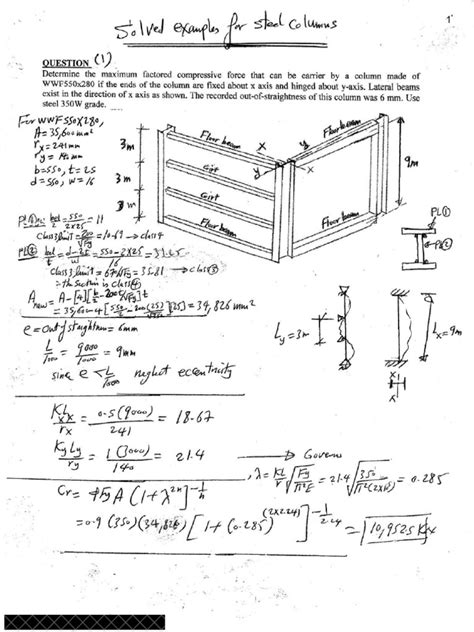 Solved examples for steel columns
1
QUESTION (1)
Determine the maximum factored compressive force that can be carrier by a column made of
WWF550x280 if the ends of the column are fixed about x axis and hinged about y-axis. Lateral beams
exist in the direction of x axis as shown. The recorded out-of-straightness of this column was 6 mm. Use
steel 350W grade.
For WWF550x280,
A = 35,600 mm²
rx = 241 mm
ry = 140 mm
b = 550, t = 25
d = 550, w = 16
3m
3m
3m
Floor beam
Girt
Girt
Floor beam
Floor beam
Floor beam
x
x
y
y
9m
PL①
PL②
PL① b/t = 550/(2x25) = 11
class 3 limit = 200/√Fy = 10.69 → class 4
PL② = (d-2t)/w = (550-2x25)/16 = 31.25
class 3 limit = 670/√Fy = 35.81 → class ③
∴ the section is class ④
A new = A - [4][b/2 - 200t/√Fy]t
= 35,600 - 4[550/2 - 200(25)/√350](25) = 34,826 mm²
e = out of straightness = 6mm
L/1000 = 9000/1000 = 9mm
since e < L/1000 neglect eccentricity
Ly = 3m
Lx = 9m
x
x
KLx/rx = 0.5(9000)/241 = 18.67
KyLy/ry = 1(3000)/140 = 21.4 → Governs
, λ = KL/r √(Fy/π²E) = 21.4 √(350/π²(2x10⁵)) = 0.285
Cr = φFy A (1 + λ²ⁿ)^(-1/n)
= 0.9 (350)(34,826) [1 + (0.285)^(2x2.24)]^(-1/2.24) = 10,952.5 KN